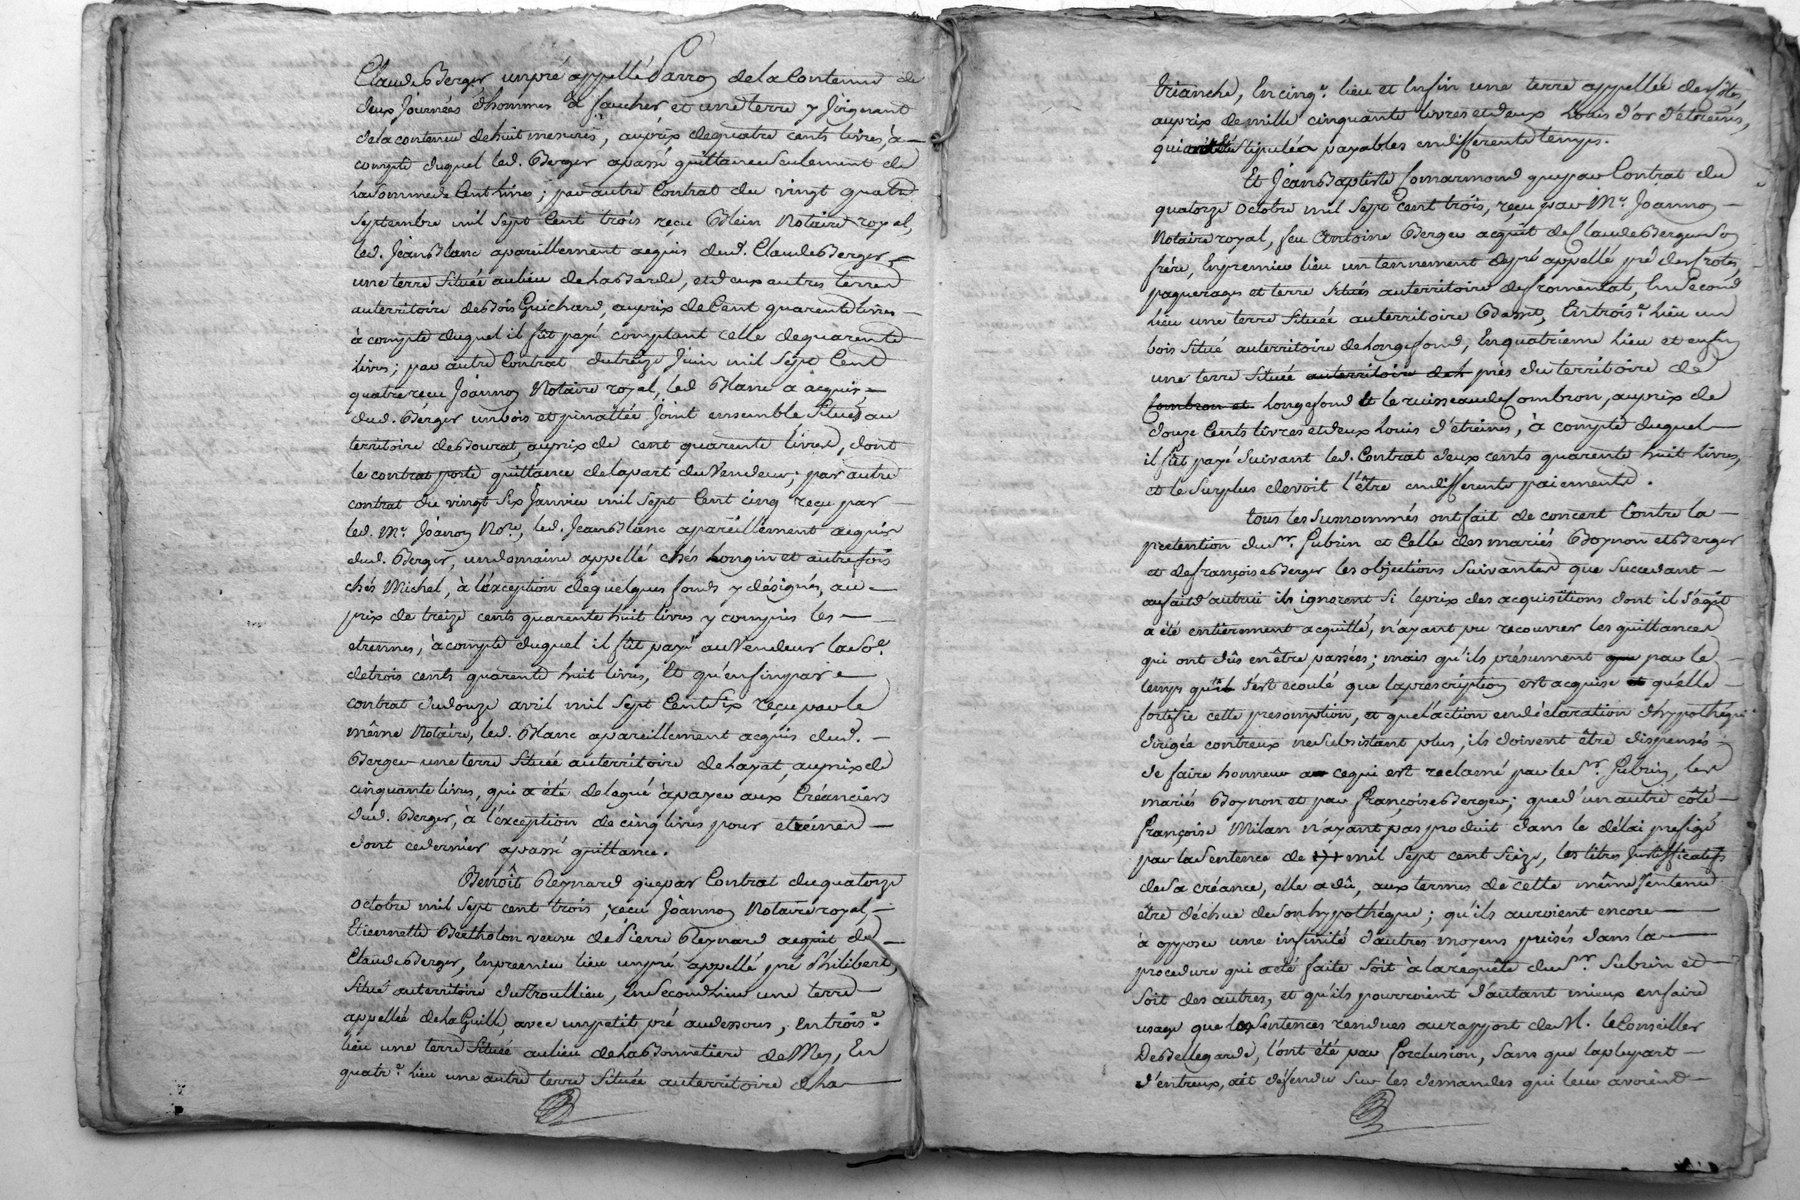 Claude Berger un pré appellé Parroy de la Contenue de
deux Journées d'hommes à faucher et une terre y Joignant
de la contenue de huit mesures, au prix de quatre cents livres, à
compte duquel led. Berger a passé quittance seulement de
la somme de Cent livres; par autre Contrat du vingt quatre
septembre mil sept Cent trois reçu Blein Notaire royal,
led. Jean Blanc a pareillement acquis dud. Claude Berger
une terre Située au lieu de la Sarde, et deux autres terres
au territoire de Bois Guichard, au prix de Cent quarente livres
à compte duquel il fût payé comptant celle de quarente
livres; par autre Contrat du treize Juin mil sept Cent
quatre reçu Joannon Notaire royal, led. Blanc a acquis
dud. Berger un bois et pinattée Joint ensemble Situés au
territoire de Bourat, au prix de cent quarente livres, dont
le contrat porte quittance de la part du Vendeur; par autre
contrat du vingt six Janvier mil sept Cent cinq reçu par
led. Mc. Joannon Nore., led. Jean Blanc a pareillement acquis
dud. Berger, un domaine appellé chés Longin et autrefois
chés Michel, à l'exception de quelques fonds y désignés, au
prix de treize cents quarente huit livres y compris les
etrennes, à compte duquel il fût payé au Vendeur la Soe.
de trois cents quarente huit livres, Et qu'enfin par
contrat du douze avril mil sept Cent Six reçu par le
même Notaire, led. Blanc a pareillement acquis dud.
Berger une terre Située au territoire de Layat, au prix de
cinquante livres, qui a été delegué à payer aux Créanciers
dud. Berger, à l'exception de cinq livres pour etrénnes
dont ce dernier a passé quittance.
Benoît Reynard que par Contrat du quatorze
octobre mil sept cent trois, reçu Joannon Notaire royal,
Etiennette Bertholon veuve de Pierre Reynard acquit de
Claude Berger, En premier lieu un pré appellé pré Philibert,
Situé au territoire du Trouillieu, En Second lieu une terre
appellée de la Guille, avec un petit pré au dessous, En troise.
lieu une terre Située au lieu de la Bonnetiere de Mey, En
quatre. lieu une autre terre Située au territoire de la
trianche, En cinqe. lieu et Enfin une terre appellée des fites,
au prix de mille cinquante livres et deux Louis d'or d'etrennes,
qui Stipulés payables en différents temps.
Et Jean Baptiste Comarmond que par Contrat du
quatorze Octobre mil sept cent trois, reçu par Mc. Joannon
Notaire royal, feu Antoine Berger acquit de Claude Berger Son
frére, En premier lieu un tennement de pré appellé pré des frotes,
paquerages et terre Situés au territoire de fromentat, En Second
lieu une terre Située au territoire Basset, En troise. lieu un
bois Situé au territoire de Longefond, En quatrieme lieu et enfin
une terre Située au territoire de h près du territoire de
Combron et Longefond Et le ruisseau de Combron, au prix de
douze Cents livres et deux Louis d'etreines, à compte duquel
il fût payé Suivant led. Contrat deux cents quarente huit livres,
et le Surplus devoit l'être en differents paiements.
Tous les Surnommés ont fait de concert Contre la
pretention du Sr. Subrin et Celle des mariés Boynon et Berger
et de françoise Berger les objections Suivantes que Succedant
au fait d'autrui ils ignorent Si le prix des acquisitions dont il s'agit
a été entierement acquitté, n'ayant pu recouvrer les quittances
qui ont dûs en être passées; mais qu'ils présument que par le
temps qu'il s'est ecoulé que la prescription est acquise et qu'elle
fortifie cette presomption, et que l'action en déclaration d'hypothéque
dirigée contr'eux ne Subsistant plus, ils doivent être dispensés
de faire honneur a ce qui est reclamé par le Sr. Subrin, les
mariés Boynon et par françoise Berger; que d'un autre côté
françoise Milan n'ayant pas produit dans le délai prefigé
par la Sentence de 171 mil Sept cent Seize, les titres Justifficatifs
de Sa créance, elle a dû, aux termes de cette même Sentence
être déchue de Son hypothéque; qu'ils auroient encore
à opposer une infinité d'autres moyens puisés dans la
procedure qui a été faite soit à la requête du Sr. Subrin et
Soit des autres, et qu'ils pourroient d'autant mieux en faire
usage que les Sentences rendues au rapport de M. le Conseiller
De Bellegarde, l'ont été par forclusion, Sans que la plupart
d'entreux, ait défendu Sur les demandes qui leur avoient